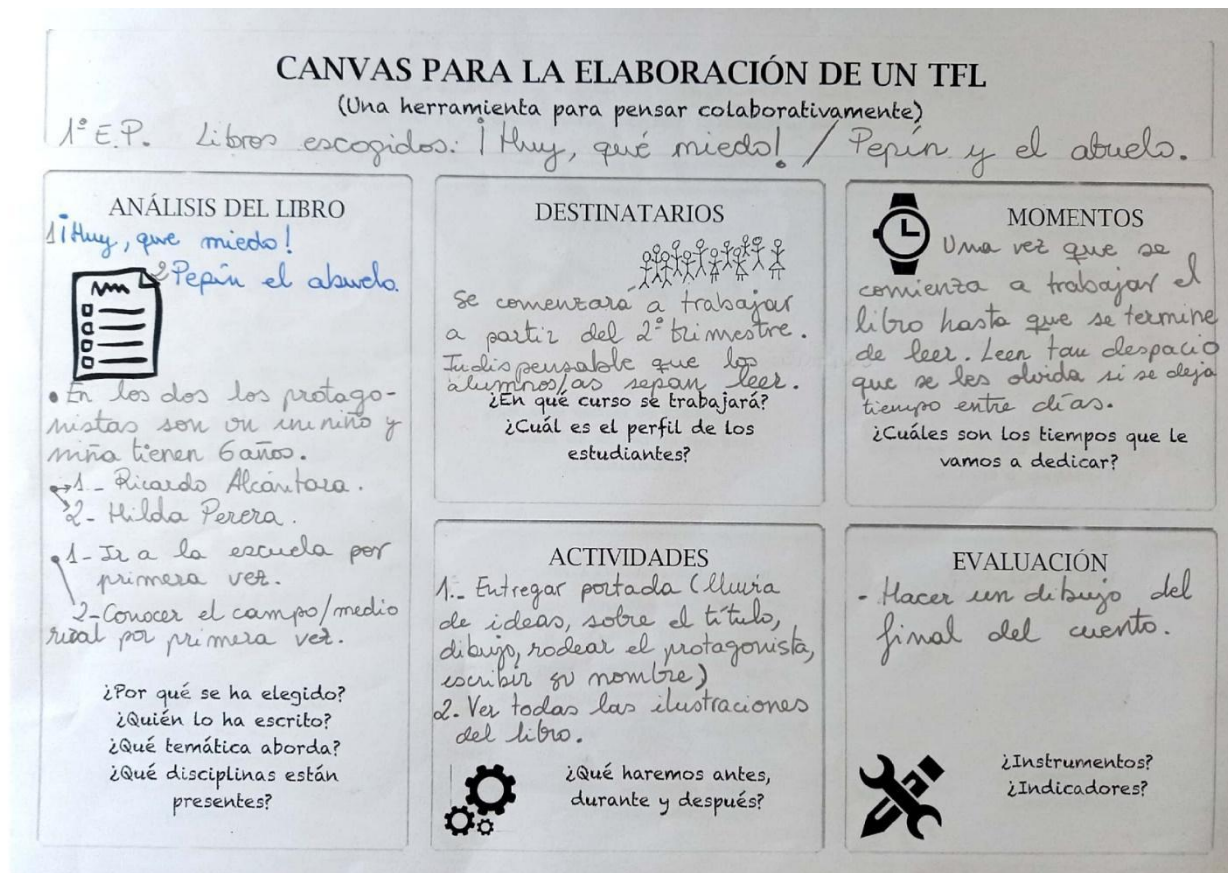 CANVAS PARA LA ELABORACIÓN DE UN TFL
(Una herramienta para pensar colaborativamente)
1º E.P. Libros escogidos: ¡Huy, qué miedo! / Pepín y el abuelo.
ANÁLISIS DEL LIBRO
1 ¡Huy, que miedo!
2 Pepín el abuelo.
• En los dos los protago-
nistas son un niño y
niña tienen 6 años.
→ 1.- Ricardo Alcántara.
2- Hilda Perera.
• 1- Ir a la escuela por
primera vez.
2-Conocer el campo/medio
rural por primera vez.
¿Por qué se ha elegido?
¿Quién lo ha escrito?
¿Qué temática aborda?
¿Qué disciplinas están
presentes?
DESTINATARIOS
Se comenzará a trabajar
a partir del 2º trimestre.
Indispensable que los
alumnos/as sepan leer.
¿En qué curso se trabajará?
¿Cuál es el perfil de los
estudiantes?
MOMENTOS
Una vez que se
comienza a trabajar el
libro hasta que se termine
de leer. Leen tan despacio
que se les olvida si se deja
tiempo entre días.
¿Cuáles son los tiempos que le
vamos a dedicar?
ACTIVIDADES
1.- Entregar portada (lluvia
de ideas, sobre el título,
dibujo, rodear el protagonista,
escribir su nombre)
2. Ver todas las ilustraciones
del libro.
¿Qué haremos antes,
durante y después?
EVALUACIÓN
- Hacer un dibujo del
final del cuento.
¿Instrumentos?
¿Indicadores?